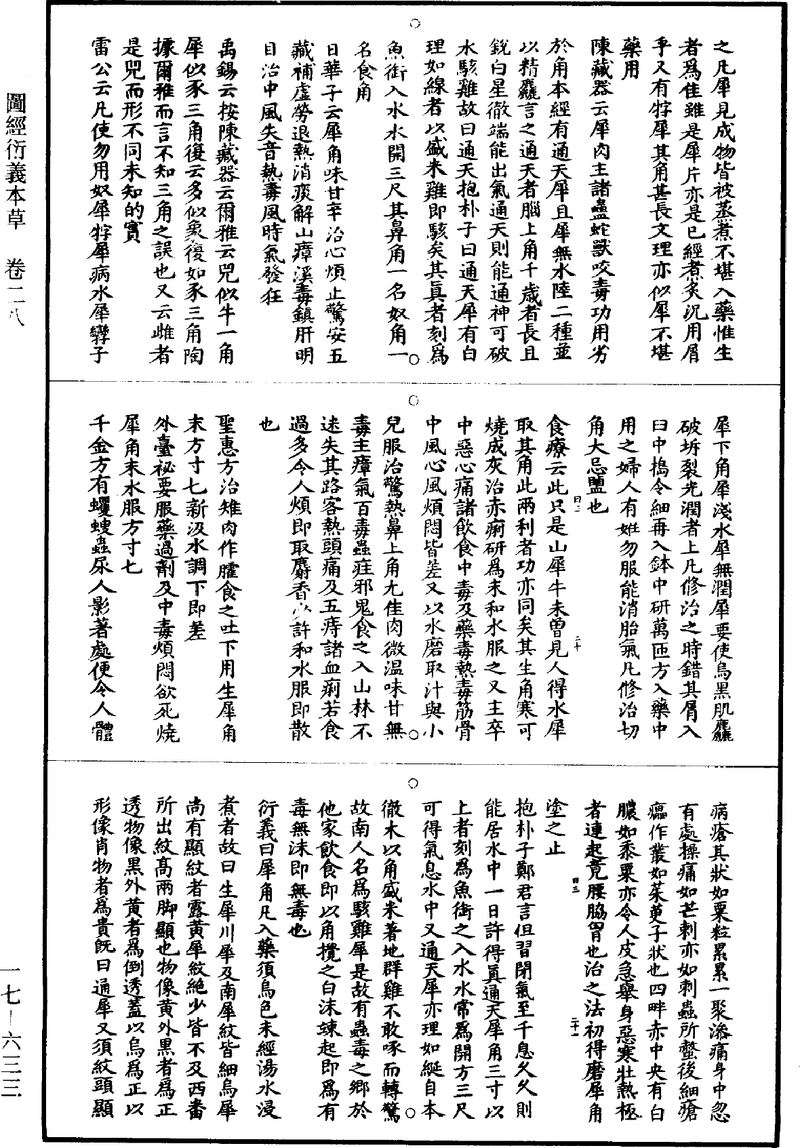 之凡犀見成物皆被蒸煮不堪入藥惟生
者爲佳雖是犀片亦是已經煮炙況用屑
乎又有牸犀其角甚長文理亦似犀不堪
藥用
陳藏器云犀肉主諸蠱蛇獸咬毒功用劣
於角本經有通天犀且犀無水陸二種並
以精麤言之通天者腦上角千歲者長且
銳白星徹端能出氣通天則能通神可破
水駭雞故曰通天抱朴子曰通天犀有白
理如線者以盛米雞即駭矣其真者刻爲
魚銜入水水開三尺其鼻角一名奴角一
名食角
日華子云犀角味甘辛治心煩止驚安五
藏補虛勞退熱消痰解山瘴溪毒鎮肝明
目治中風失音熱毒風時氣發狂
禹錫云按陳藏器云爾雅云兕似牛一角
犀似豕三角復云多似象復如豕三角陶
據爾雅而言不知三角之誤也又云雌者
是兕而形不同未知的實
雷公云凡使勿用奴犀牸犀病水犀孿子
犀下角犀淺水犀無潤犀要使烏黑肌麤
破坼裂光潤者上凡修治之時錯其屑入
臼中搗令細再入鉢中研萬匝方入藥中
用之婦人有姙勿服能消胎氣凡修治切
角大忌鹽也
食療云此只是山犀牛未曾見人得水犀
取其角此兩利者功亦同矣其生角寒可
燒成灰治赤痢研爲末和水服之又主卒
中惡心痛諸飲食中毒及藥毒熱毒筋骨
中風心風煩悶皆差又以水磨取汁與小
兒服治驚熱鼻上角尤佳肉微温味甘無
毒主瘴氣百毒蟲疰邪鬼食之入山林不
迷失其路客熱頭痛及五痔諸血痢若食
過多令人煩即取麝香少許和水服即散
也
聖惠方治雉肉作臛食之吐下用生犀角
末方寸七新汲水調下即差
外臺祕要服藥過劑及中毒煩悶欲死燒
犀角末水服方寸七
千金方有蠼螋蟲尿人影著處便令人體
病瘡其狀如粟粒累累一聚滲痛身中忽
有處操痛如芒刺亦如刺蟲所螫後細瘡
㿔作叢如茱萸子狀也四畔赤中央有白
膿如黍粟亦令人皮急舉身惡寒壯熱極
者連起竟腰脇胷也治之法初得磨犀角
塗之止
抱朴子鄭君言但習閉氣至千息久久則
能居水中一日許得真通天犀角三寸以
上者刻爲魚銜之入水水常爲開方三尺
可得氣息水中又通天犀亦理如綖自本
徹木以角盛米著地群雞不敢啄而轉驚
故南人名爲駭雞犀是故有蟲毒之鄉於
他家飲食即以角攪之白沫竦起即爲有
毒無沫即無毒也
衍義曰犀角凡入藥須烏色未經湯水浸
煮者故曰生犀川犀及南犀紋皆細烏犀
尚有顯紋者露黃犀紋絶少皆不及西番
所出紋高兩脚顯也物像黃外黑者爲正
透物像黑外黃者爲倒透蓋以烏爲正以
形像肖物者爲貴既曰通犀又須紋頭顯
圖經衍義本草　卷二八
一七—六三三